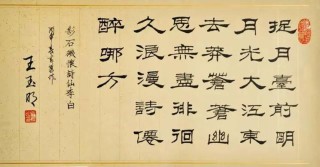 捉月臺前明
月光大江東
去莽蒼蒼幽
思無盡徘徊
久浪漫詩僊
醉哪方
彩石磯懷詩仙李白
王玉明